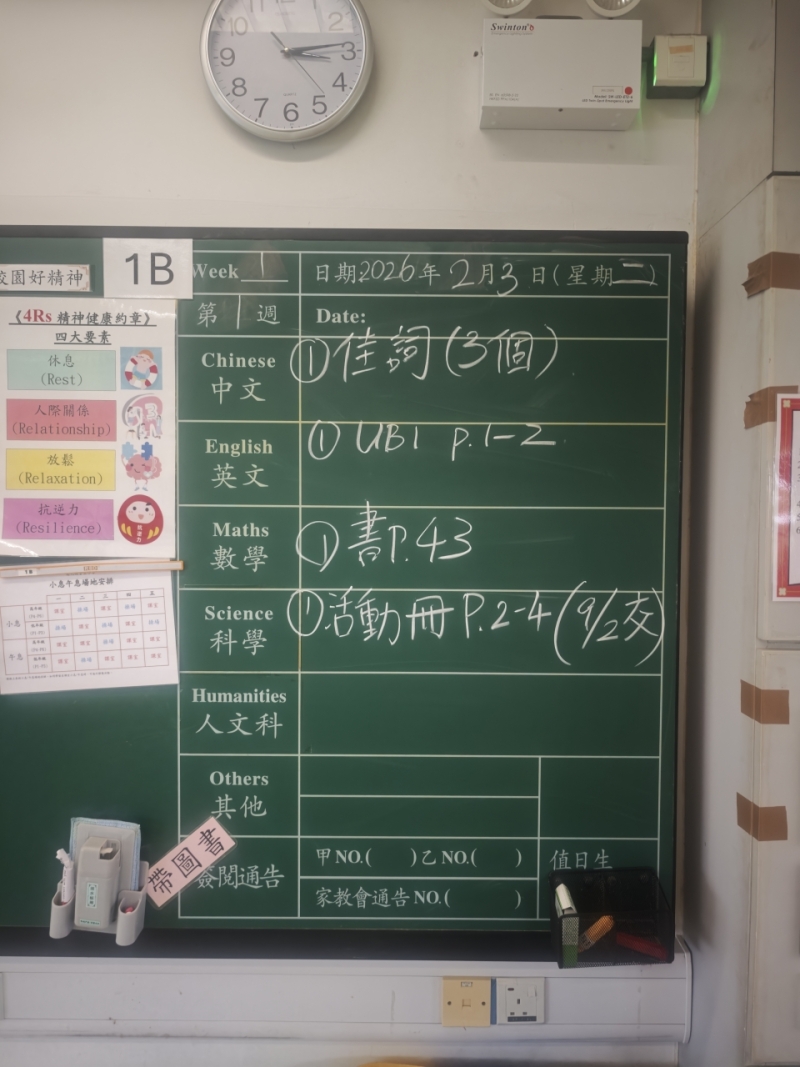 2
10
3
9
4
8
5
7
6
QUARTZ
Swinton
校園好精神
1B
Week 1
日期:2026年2月3日(星期二)
第1週
Date:
Chinese
中文
① 佳詞(3個)
English
英文
① UB1 p.1-2
Maths
數學
① 書P.43
Science
科學
① 活動冊 P.2-4 (9/2交)
Humanities
人文科
Others
其他
簽閱通告
甲NO.( )乙NO.( )
家教會通告NO.( )
值日生
《4Rs 精神健康約章》
四大要素
休息
(Rest)
人際關係
(Relationship)
放鬆
(Relaxation)
抗逆力
(Resilience)
小息午息場地安排
一 二 三 四 五
小息
午息
帶圖書